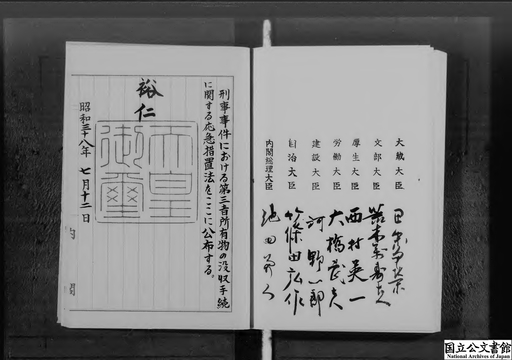 大蔵大臣 田中角栄
文部大臣 荒木萬壽夫
厚生大臣 西村英一
労働大臣 大橋武夫
建設大臣 河野一郎
自治大臣 篠田弘作
内閣総理大臣 池田勇人
刑事事件における第三者所有物の没収手続
に関する応急措置法をここに公布する。
裕仁
天皇
御璽
昭和三十八年 七月十二日
内 閣
国立公文書館
National Archives of Japan